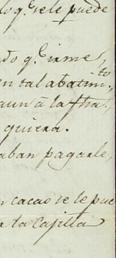 lo q.e se le puede
do q.e irme,
en tal abatim.to
aun à la Sra.
quiera.
aban pagarle,
n cacao se le pue
a la Capilla